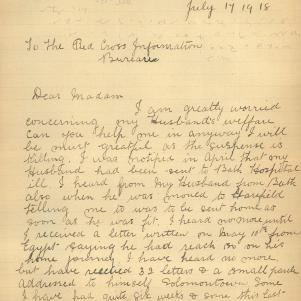 July 17 1918
To The Red Cross Information
Bureau
Dear Madam
I am greatly worried
concerning my Husband's welfare
can you help me in anyway I will
be must greatful as the suspense is
killing. I was notified in April that my
Husband had been sent to Bath Hospital
ill. I heard from my Husband from Bath
also when he was moved to Harfield
telling me to was to be sent home as
soon as he was fit I heard no more until
I received a letter written on May 10th from
Egypt saying he had reach so on his
home journey I have heard no more
but have received 32 letters & a small pack
addressed to himself Solomontown Some
I have had quite six weeks & some this last